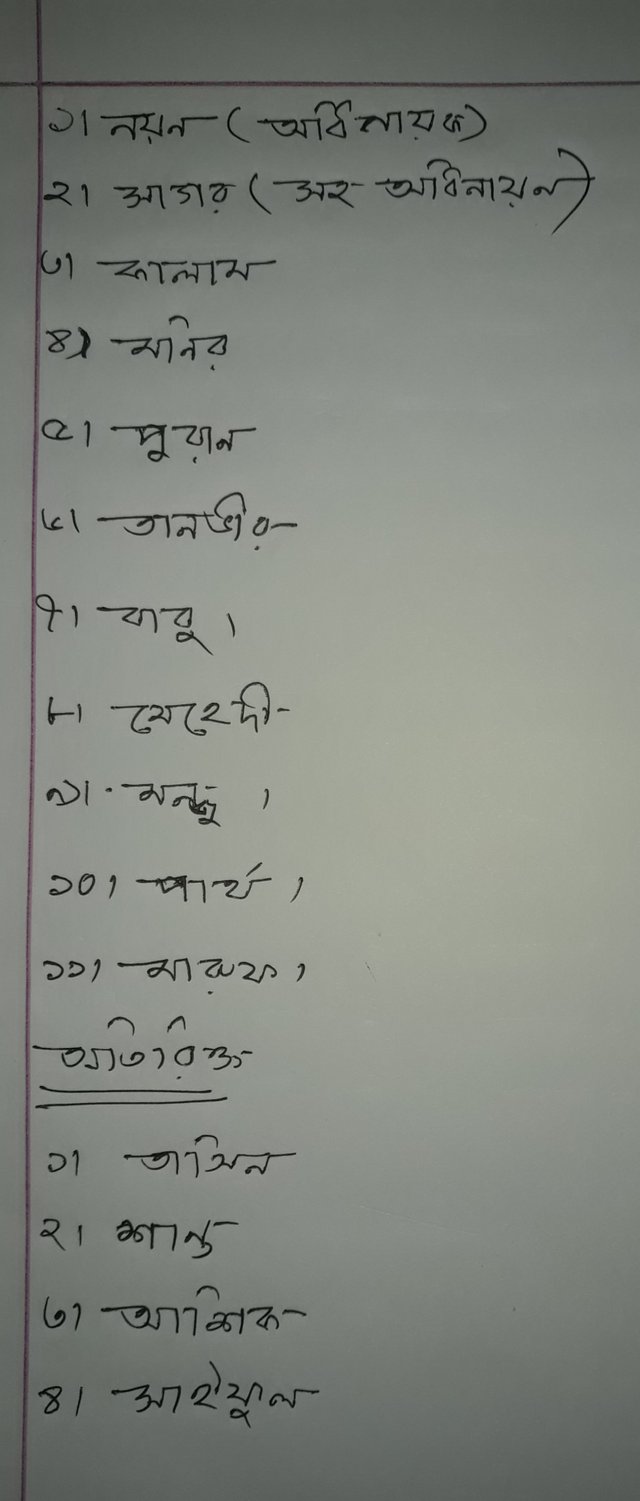 ১। নয়ন (অধিনায়ক)
২। (সহ অধিনায়ন)
৩। কালাম
৪) মনির
৫।
৬। তানভীর
৭। বাবু।
৮। মেহেদী
৯। মনজু।
১০। পার্থ।
১১। মারুফ।
অতিরিক্ত
১। তামিন
২। শান্ত
৩। আশিক
৪। সাইফুল